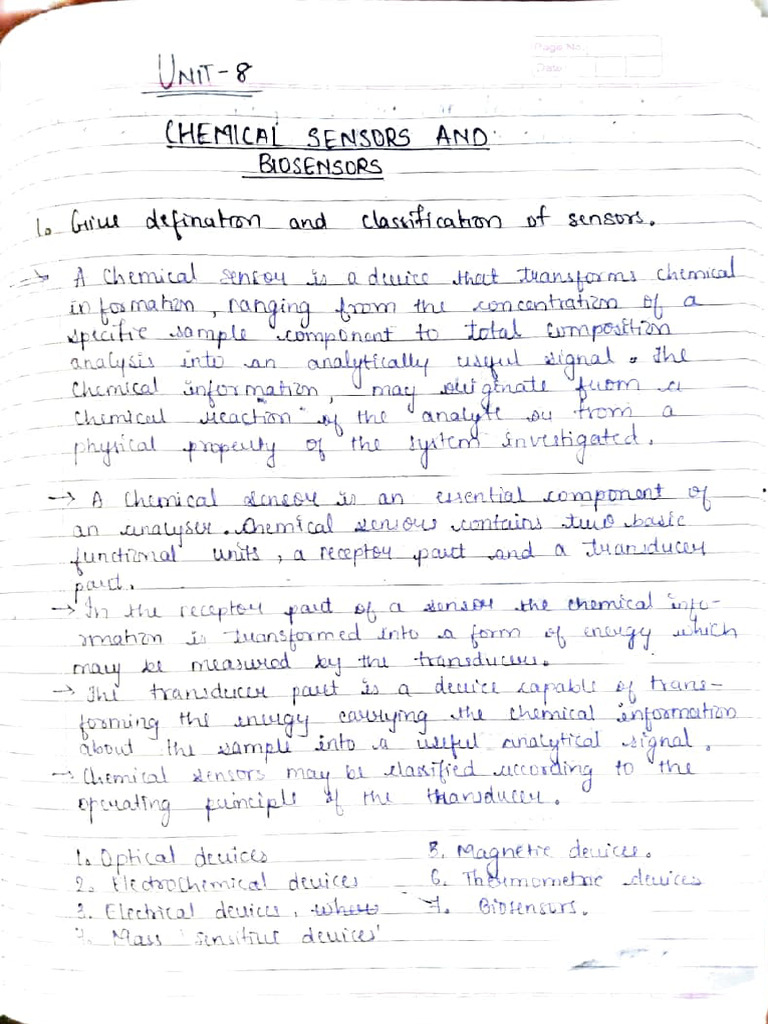 Page No.
Date
UNIT-8
CHEMICAL SENSORS AND
BIOSENSORS
1. Give defination and classification of sensors.
→ A Chemical sensor is a device that transforms chemical
information, ranging from the concentration of a
specific sample component to total composition
analysis into an analytically useful signal. The
chemical information, may originate from a
chemical reaction of the analyte or from a
physical property of the system investigated.
→ A Chemical sensor is an essential component of
an analyser. Chemical sensors contains two basic
functional units, a receptor part and a transducer
part.
→ In the receptor part of a sensor the chemical info-
rmation is transformed into a form of energy which
may be measured by the transducer.
→ The transducer part is a device capable of trans-
forming the energy carrying the chemical information
about the sample into a useful analytical signal.
→ Chemical sensors may be classified according to the
operating principle of the transducer.
1. Optical devices
2. Electrochemical devices
3. Electrical devices, where
4. Mass sensitive devices
5. Magnetic devices.
6. Thermometric devices
7. Biosensors.